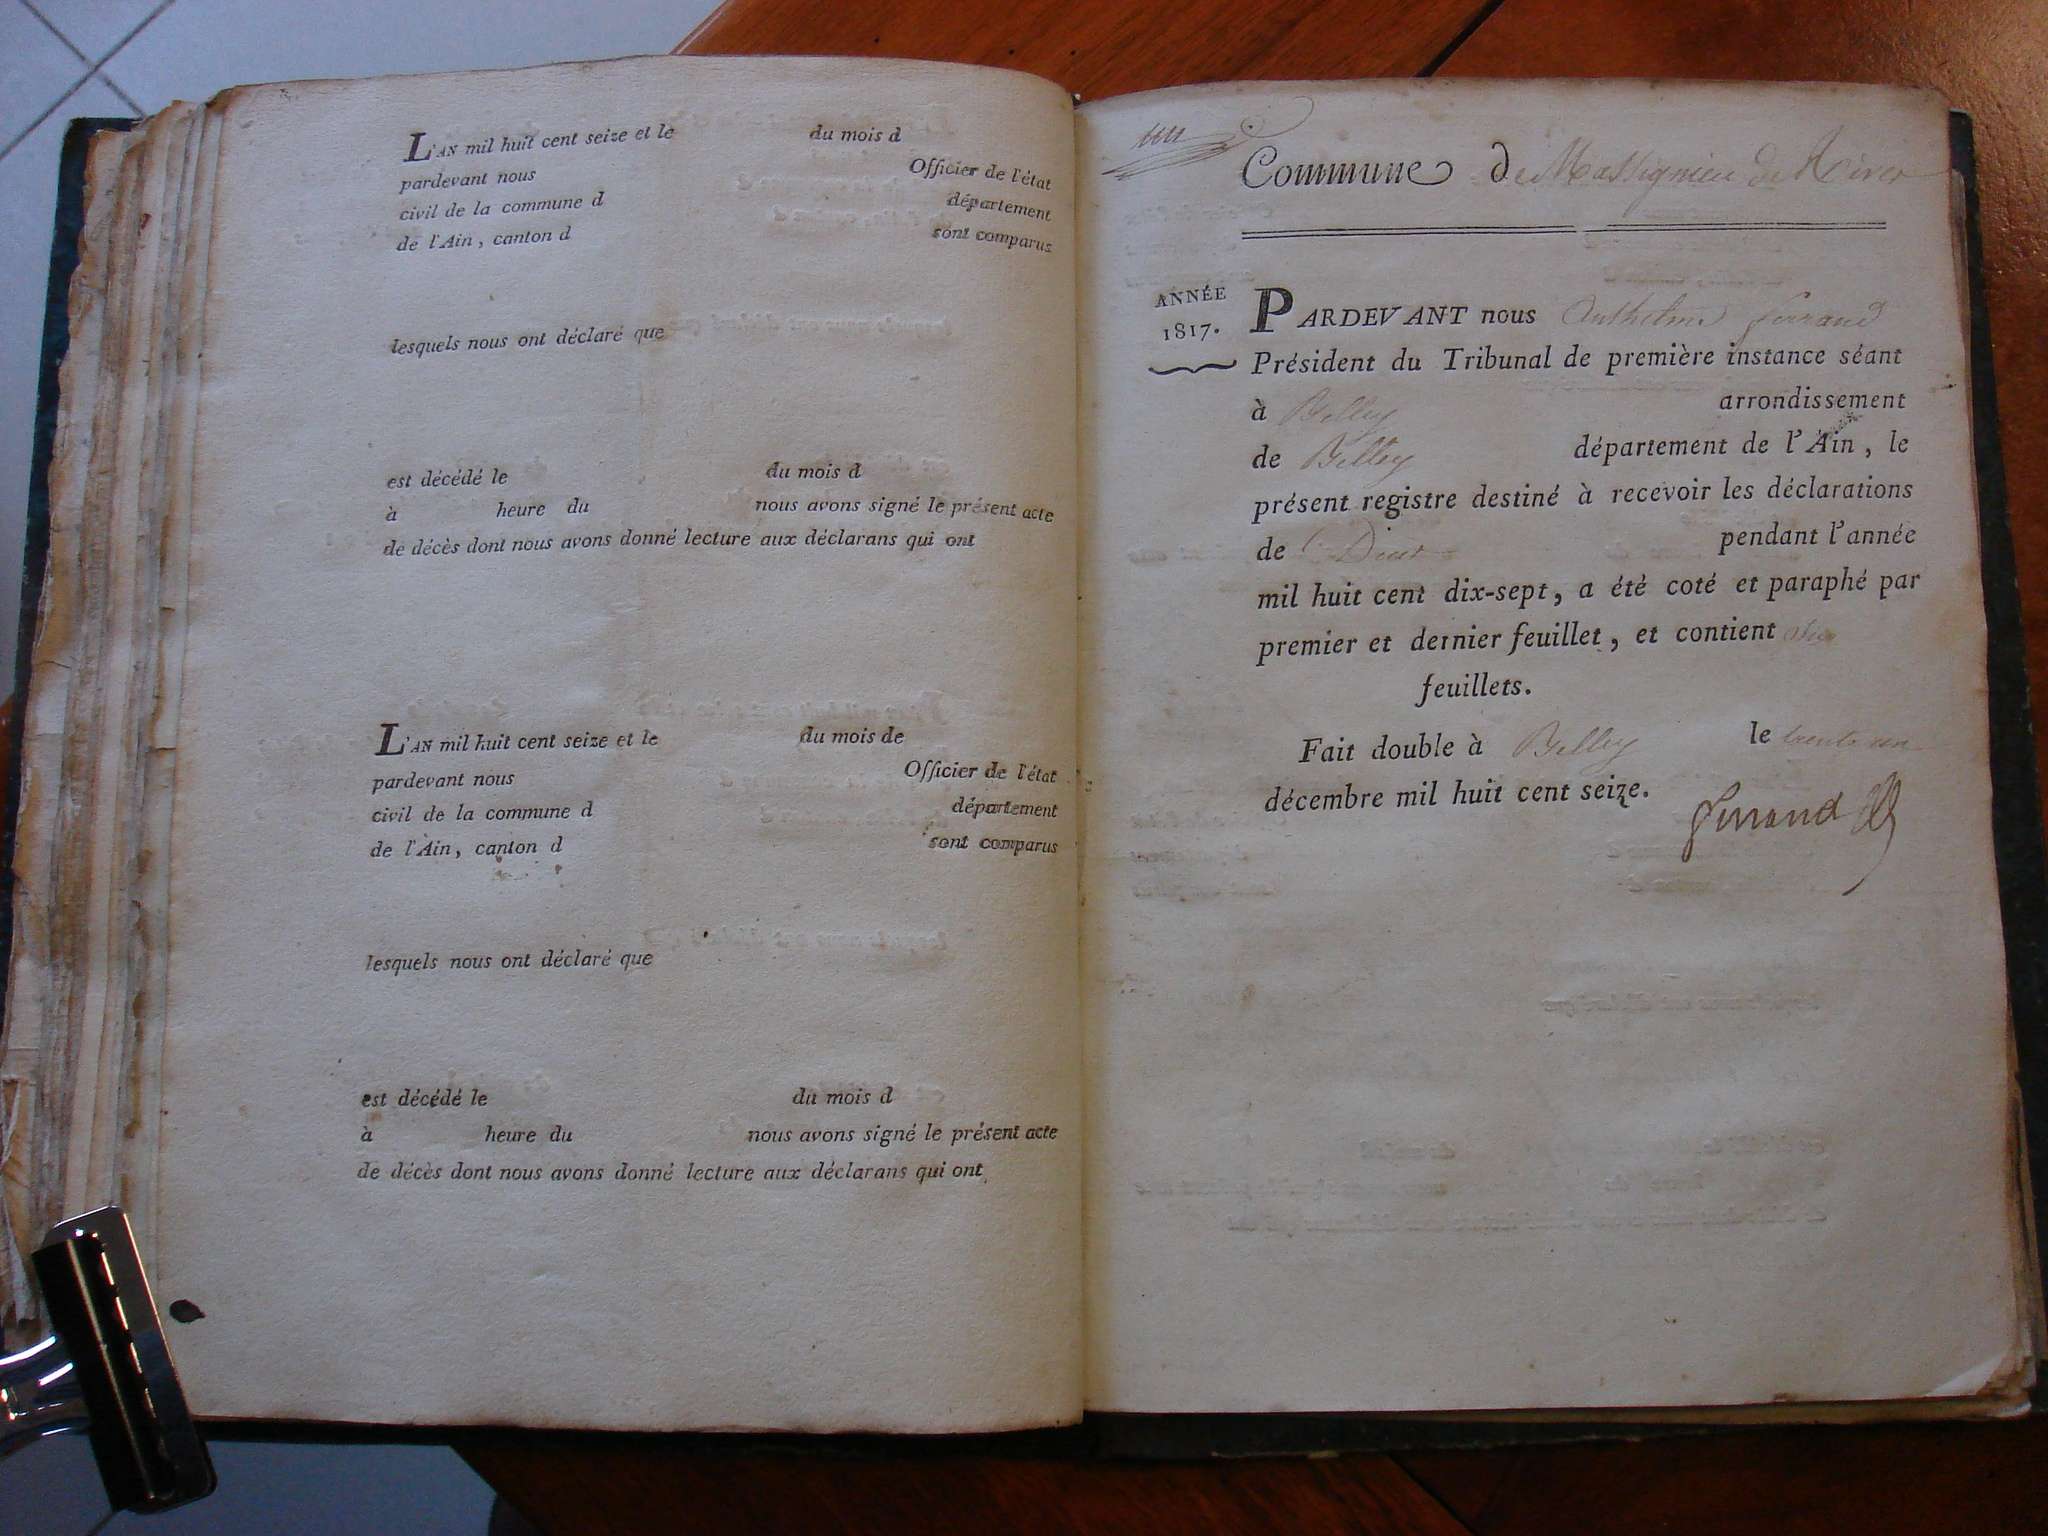 L'AN mil huit cent seize et le du mois d
pardevant nous Officier de l'état
civil de la commune d département
de l'Ain, canton d sont comparus
lesquels nous ont déclaré que
est décédé le du mois d
à heure du nous avons signé le présent acte
de décès dont nous avons donné lecture aux déclarans qui ont
L'AN mil huit cent seize et le du mois de
pardevant nous Officier de l'état
civil de la commune d département
de l'Ain, canton d sont comparus
lesquels nous ont déclaré que
est décédé le du mois d
à heure du nous avons signé le présent acte
de décès dont nous avons donné lecture aux déclarans qui ont
Commune de Massignieu de Rives
ANNÉE
1817.
PARDEVANT nous Anthelme ferrand
Président du Tribunal de première instance séant
à Belley arrondissement
de Belley département de l'Ain, le
présent registre destiné à recevoir les déclarations
de pendant l'année
mil huit cent dix-sept, a été coté et paraphé par
premier et dernier feuillet, et contient
feuillets.
Fait double à Belley le trente un
décembre mil huit cent seize.
ferrand